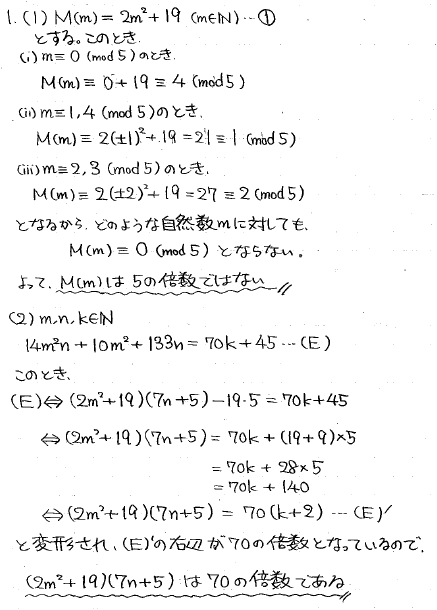 1. (1) M(m) = 2m²+19 (m∈N) … ①
とする。このとき.
(i) m≡0 (mod 5) のとき.
M(m) ≡ 0+19 ≡ 4 (mod 5)
(ii) m≡1,4 (mod 5) のとき.
M(m) ≡ 2(±1)²+19 = 21 ≡ 1 (mod 5)
(iii) m≡2,3 (mod 5) のとき.
M(m) ≡ 2(±2)²+19 = 27 ≡ 2 (mod 5)
となるから. どのような自然数mに対しても.
M(m) ≡ 0 (mod 5) とならない。
よって. M(m)は 5の倍数ではない
(2) m,n,k∈N
14m²n + 10m² + 133n = 70k + 45 … (E)
このとき.
(E)⇔ (2m²+19)(7n+5) − 19・5 = 70k+45
⇔ (2m²+19)(7n+5) = 70k + (19+9)×5
= 70k + 28×5
= 70k + 140
⇔ (2m²+19)(7n+5) = 70(k+2) … (E)′
と変形され、(E)′の右辺が70の倍数となっているので.
(2m²+19)(7n+5) は 70の倍数である